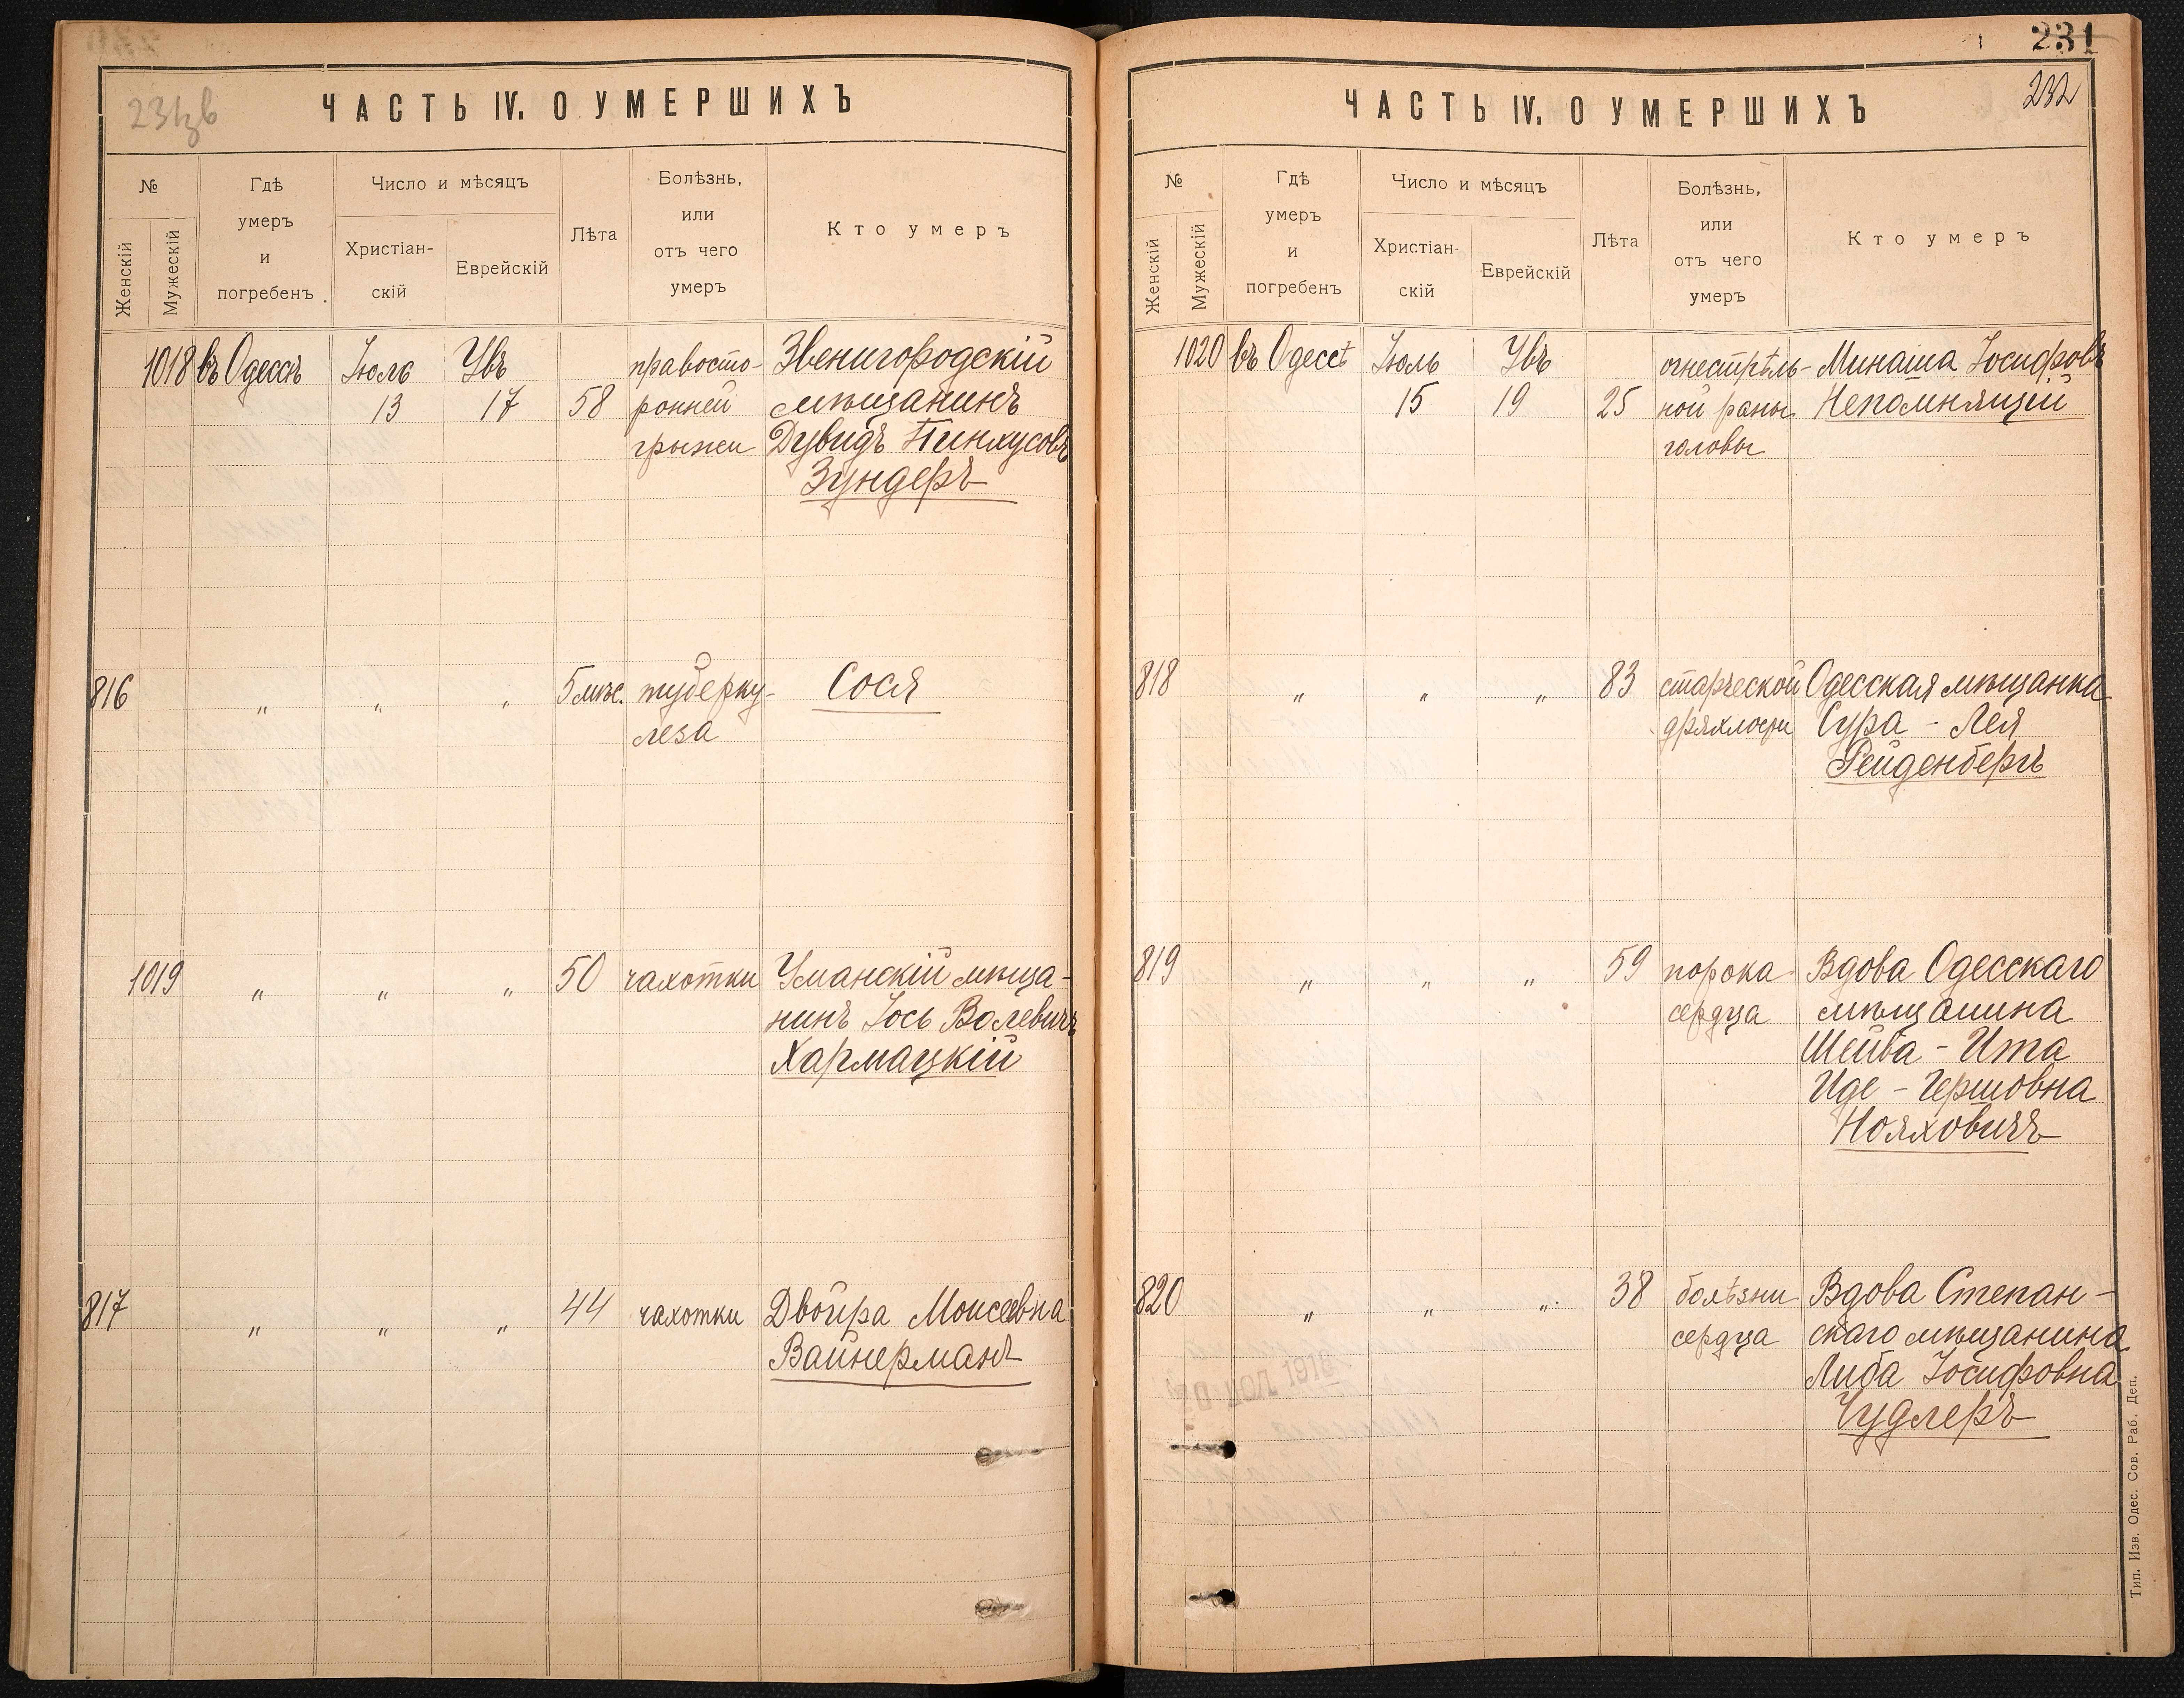 231зв
ЧАСТЬ IV. О УМЕРШИХЪ
№
Женскій
Мужескій
Гдѣ
умеръ
и
погребенъ
Число и мѣсяцъ
Христіан-
скій
Еврейскій
Лѣта
Болѣзнь,
или
отъ чего
умеръ
Кто умеръ
1018 въ Одессѣ Іюль Увъ правосто- Звенигородскій
13 17 58 ронней мѣщанинъ
грыжи Дувидъ Пинхусовъ
Зундеръ
816 " " " 5 мѣс. туберку- Сося
леза
1019 " " " 50 чахотки Уманскій мѣща-
нинъ Іось Волевичъ
Хармацкій
817 " " " 44 чахотки Двойра Моисеевна
Вайнерманъ
231
232
ЧАСТЬ IV. О УМЕРШИХЪ
№
Женскій
Мужескій
Гдѣ
умеръ
и
погребенъ
Число и мѣсяцъ
Христіан-
скій
Еврейскій
Лѣта
Болѣзнь,
или
отъ чего
умеръ
Кто умеръ
1020 въ Одессѣ Іюль Увъ огнестрѣль- Минаша Іосифовъ
15 19 25 ной раны Непомнящій
головы
818 " " " 83 старческой Одесская мѣщанка
дряхлости Сура - Лея
Рейденбергъ
819 " " " 59 порока Вдова Одесскаго
сердца мѣщанина
Шейва - Ита
Иде - Гершовна
Нояховичъ
820 " " " 38 болѣзни Вдова Степан-
сердца скаго мѣщанина
Либа Іосифовна
Чудлеръ
Тип. Изв. Одес. Сов. Раб. Деп.